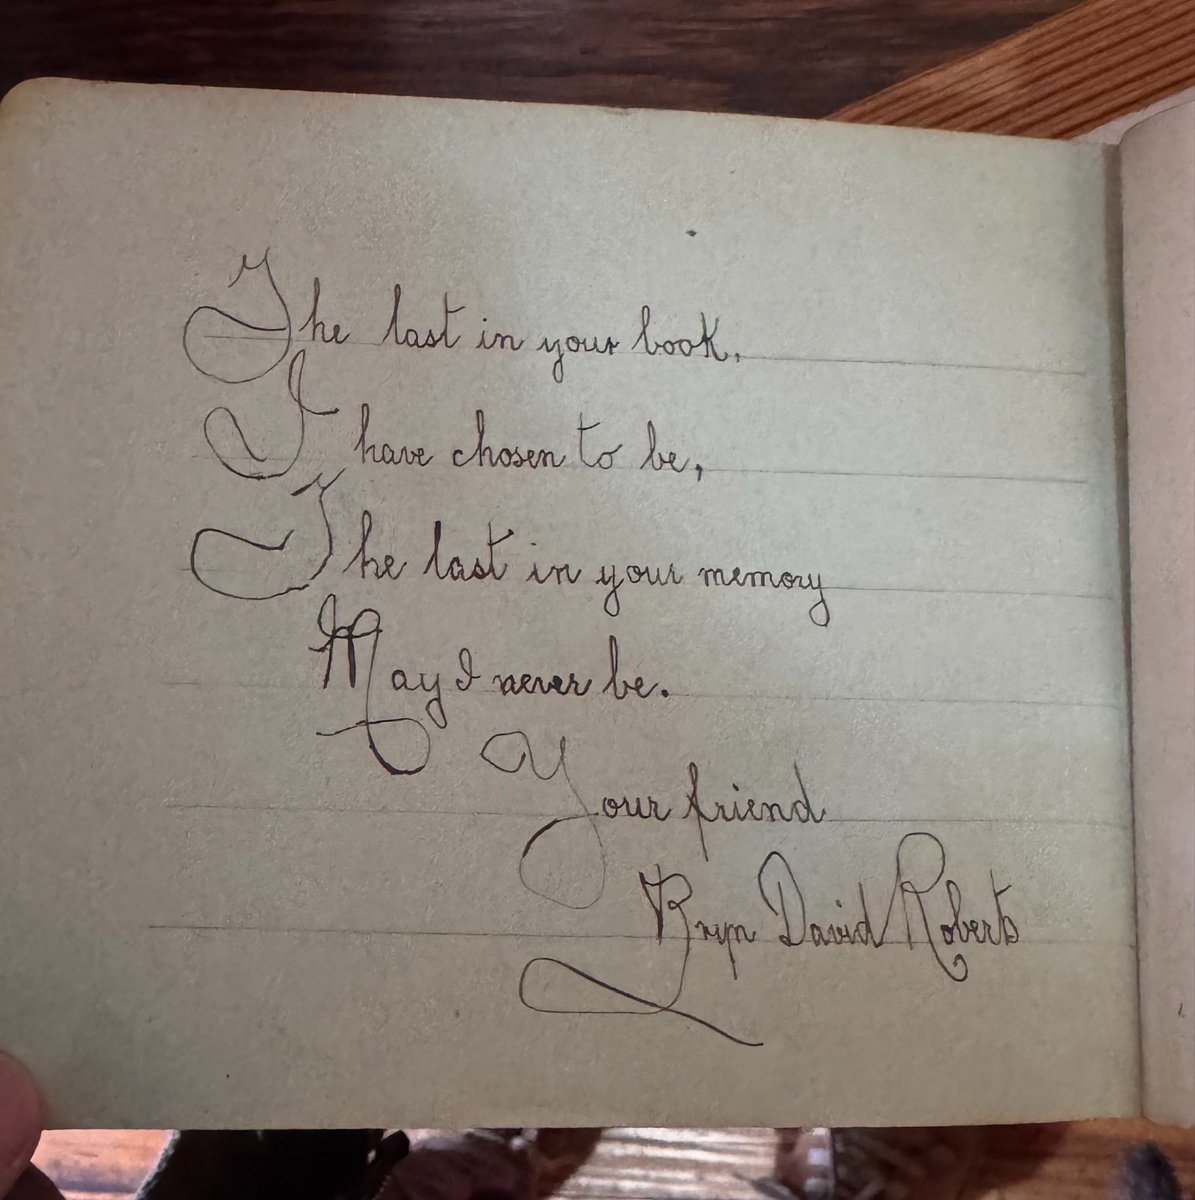 The last in your book,
I have chosen to be,
The last in your memory
May I never be.
Your friend
Bryn David Roberts